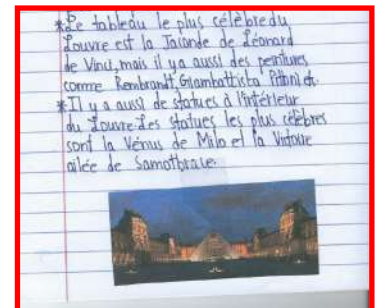 *Le tableau le plus célèbre du
Louvre est la Joconde de Léonard
de Vinci, mais il y a aussi des peintures
comme Rembrandt, Giambattista Pittoni etc.
*Il y a aussi de statues à l'intérieur
du Louvre. Les statues les plus célèbres
sont la Vénus de Milo et la Victoire
ailée de Samothrace.